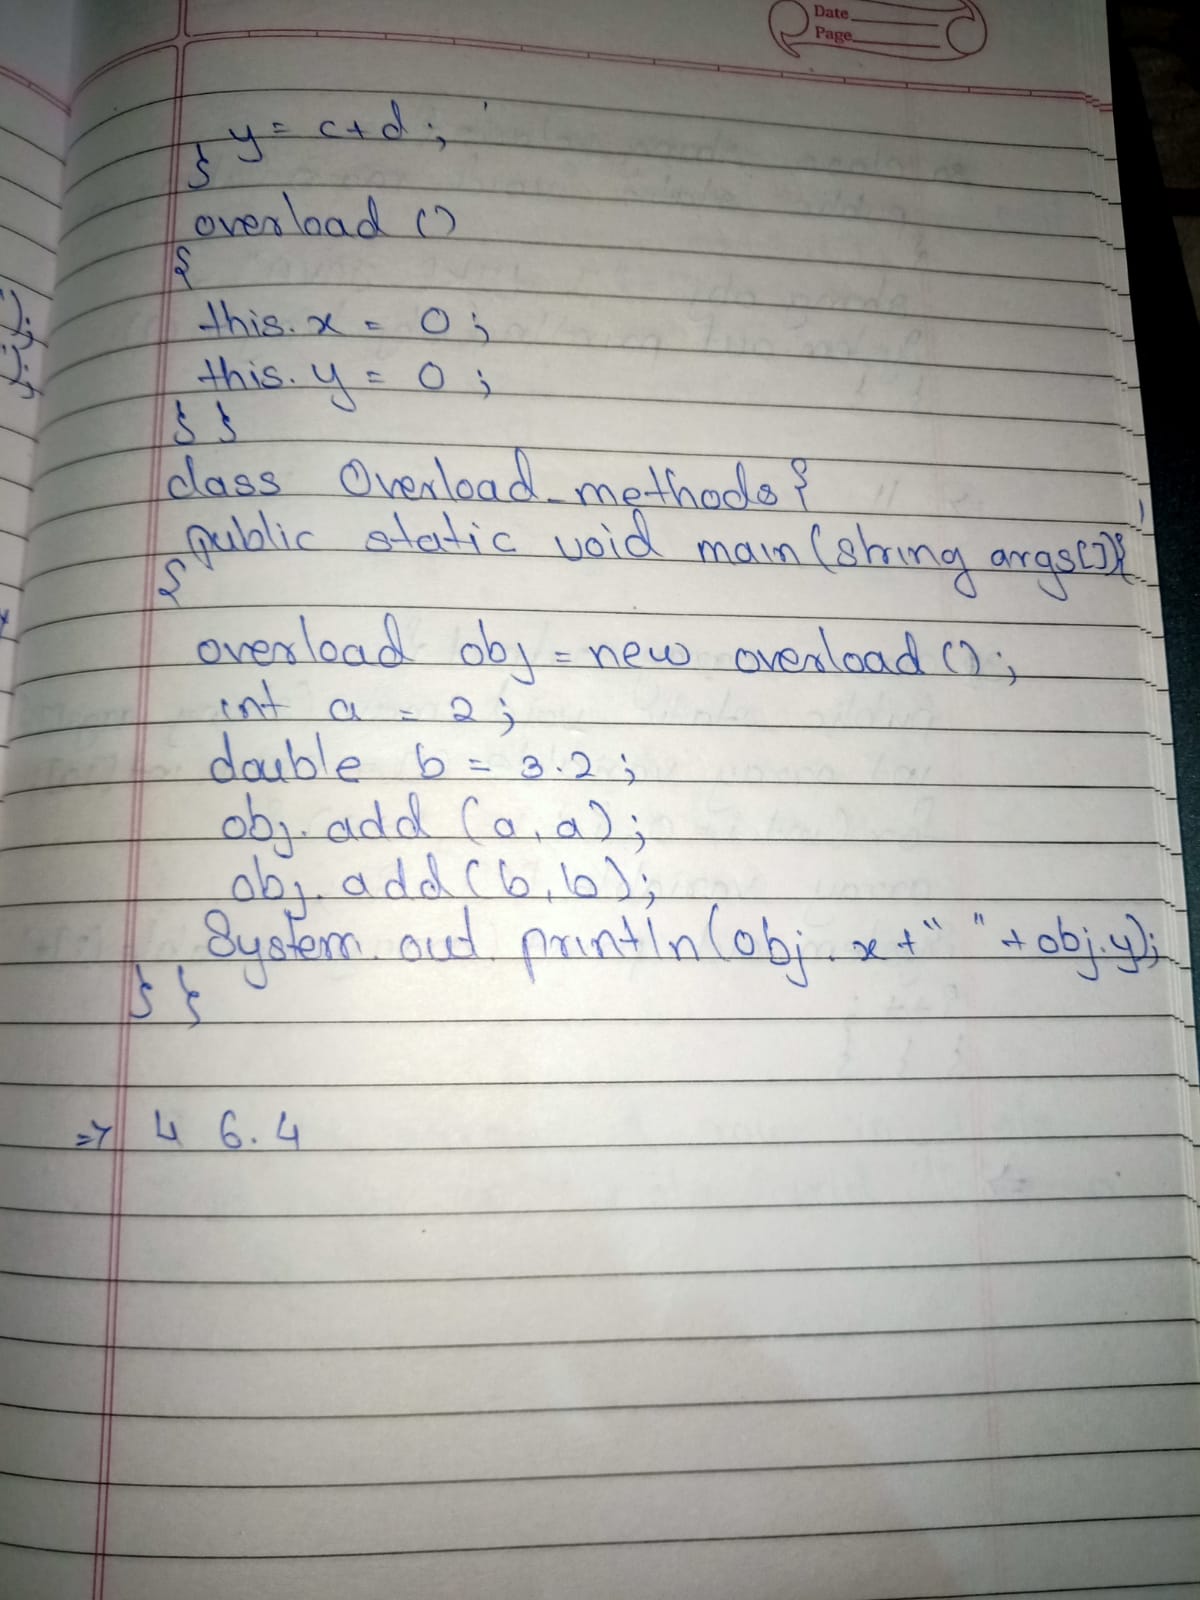 Date
Page
y = c+d ;
}
overload ()
{
this.x = 0 ;
this.y = 0 ;
} }
class Overload_methods {
public static void main(string args[]){
{
overload obj = new overload ();
int a = 2 ;
double b = 3.2 ;
obj.add (a, a) ;
obj.add (b, b) ;
System.out.println(obj.x+" "+obj.y);
} }
=> 4 6.4